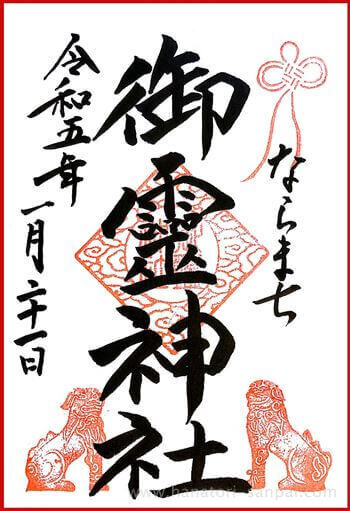 ならまち
御靈神社
令和五年一月二十一日
www.hanatori-sanpai.com